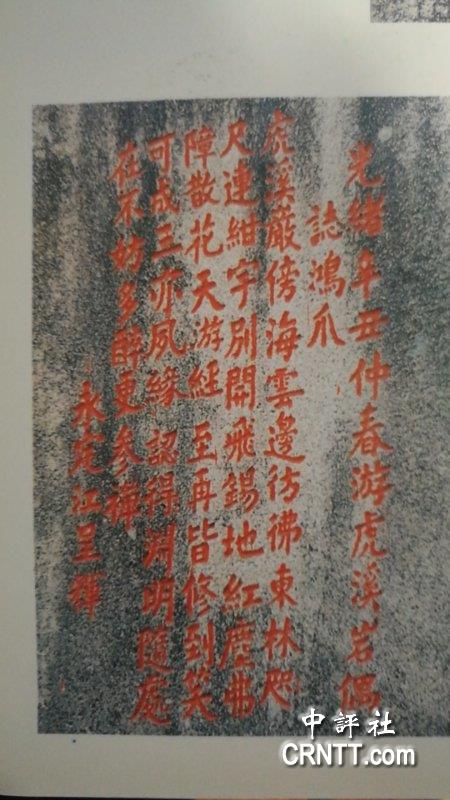 光緒辛丑仲春游虎溪岩偶
誌鴻爪
虎溪巖傍海雲邊彷彿東林咫
尺連紺宇別開飛錫地紅塵弗
障散花天游經至再皆修到笑
可成三亦夙緣認得淵明隨處
在不妨多醉更參禪
永定江呈輝
中評社
CRNTT.com